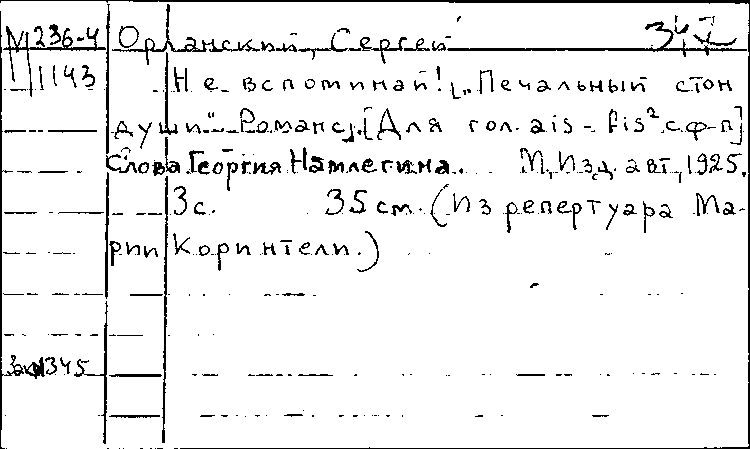 М 236-4 Орланский, Сергей 34
1143 Не вспоминай! „Печальный стон
души" Романс. [Для гол. ais - fis² с ф-п]
Слова Георгия Намлегина. М, Изд. авт., 1925.
3 с. 35 см. (Из репертуара Ма-
рии Коринтели.)
Зак 1345